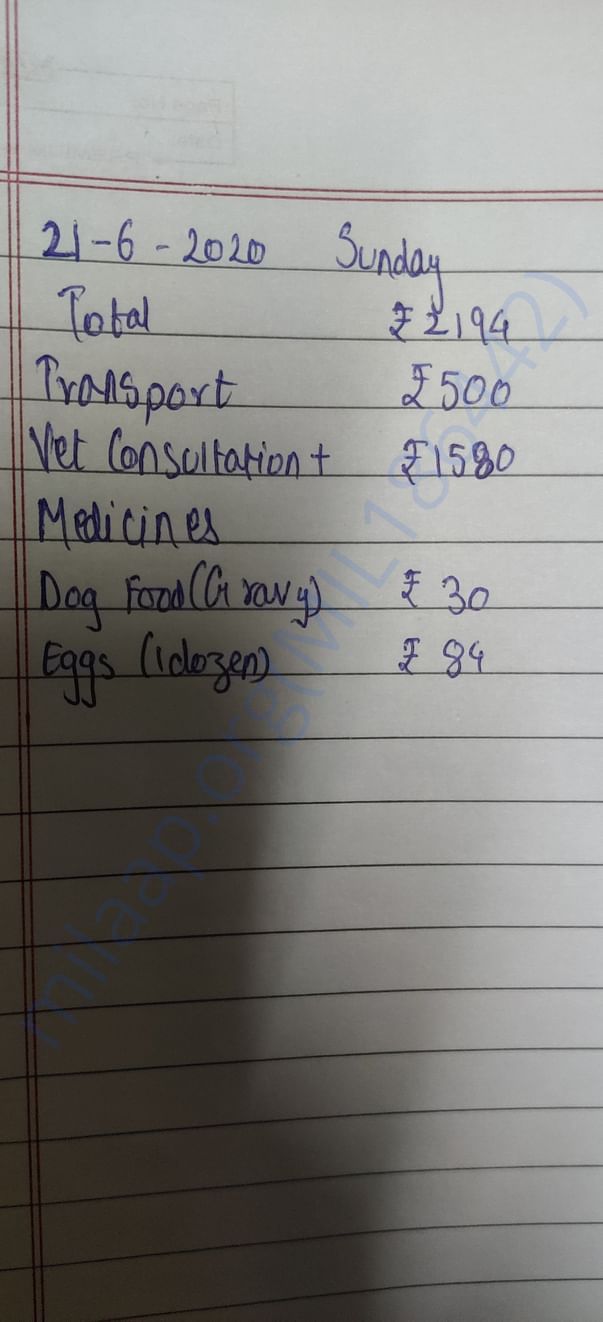 21-6-2020 Sunday
Total ₹2194
Transport ₹500
Vet Consultation + ₹1580
Medicines
Dog Food (Gravy) ₹ 30
Eggs (1dozen) ₹ 84
milaap.org(MIL186442)